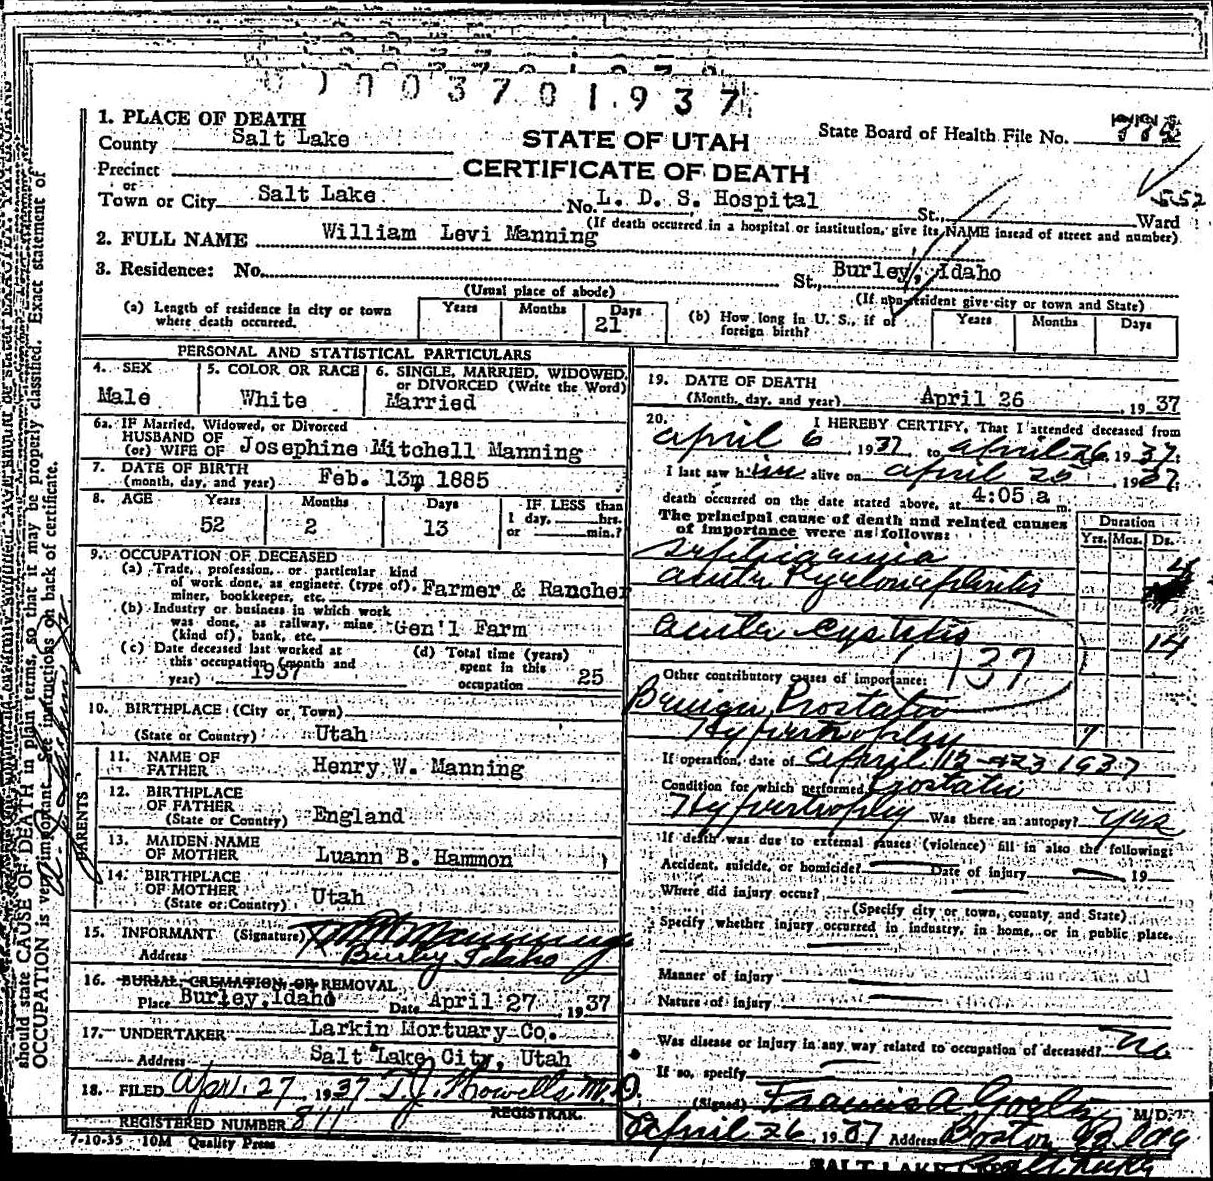 00003701937
1. PLACE OF DEATH
County Salt Lake
STATE OF UTAH
CERTIFICATE OF DEATH
State Board of Health File No.
Precinct
or
Town or City Salt Lake No. L. D. S. Hospital St., Ward
(If death occurred in a hospital or institution, give its NAME insead of street and number)
2. FULL NAME William Levi Manning
3. Residence: No. St., Burley, Idaho
(Usual place of abode) (If non-resident give city or town and State)
(a) Length of residence in city or town where death occurred. Years Months Days 21
(b) How long in U. S., if of foreign birth? Years Months Days
PERSONAL AND STATISTICAL PARTICULARS
4. SEX Male
5. COLOR OR RACE White
6. SINGLE, MARRIED, WIDOWED, or DIVORCED (Write the Word) Married
6a. IF Married, Widowed, or Divorced
HUSBAND OF
(or) WIFE OF Josephine Mitchell Manning
7. DATE OF BIRTH
(month, day, and year) Feb. 13m 1885
8. AGE Years 52 Months 2 Days 13 IF LESS than 1 day, hrs. or min.?
9. OCCUPATION OF DECEASED
(a) Trade, profession, or particular kind
of work done, as engineer (type of).
miner, bookkeeper, etc. Farmer & Rancher
(b) Industry or business in which work
was done, as railway, mine
(kind of), bank, etc. Gen'l Farm
(c) Date deceased last worked at
this occupation (month and
year) 1937
(d) Total time (years)
spent in this
occupation 25
10. BIRTHPLACE (City or Town)
(State or Country) Utah
PARENTS
11. NAME OF
FATHER Henry W. Manning
12. BIRTHPLACE
OF FATHER
(State or Country) England
13. MAIDEN NAME
OF MOTHER Luann B. Hammon
14. BIRTHPLACE
OF MOTHER
(State or Country) Utah
15. INFORMANT (Signature) Manning
Address Burley Idaho
16. BURIAL, CREMATION, OR REMOVAL
Place Burley, Idaho Date April 27 1937
17. UNDERTAKER Larkin Mortuary Co.
Address Salt Lake City, Utah
18. FILED Apr. 27 1937 T. J. Howells M. D.
REGISTRAR.
REGISTERED NUMBER 811
7-10-35 10M Quality Press
19. DATE OF DEATH
(Month, day, and year) April 26, 1937
20. I HEREBY CERTIFY, That I attended deceased from
April 6, 1937 to April 26, 1937.
I last saw him alive on April 25, 1937
death occurred on the date stated above, at 4:05 a m.
The principal cause of death and related causes
of importance were as follows:
Duration
Yrs. Mos. Ds.
Acute Pyelonephritis
Acute Cystitis 14
137
Other contributory causes of importance:
Benign Prostatic
Hypertrophy
If operation, date of April 1937
Condition for which performed Prostatic
Hypertrophy Was there an autopsy? Yes
If death was due to external causes (violence) fill in also the following:
Accident, suicide, or homicide? Date of injury 19
Where did injury occur?
(Specify city or town, county, and State)
Specify whether injury occurred in industry, in home, or in public place.
Manner of injury
Nature of injury
Was disease or injury in any way related to occupation of deceased? No
If so, specify
(Signed) Francis A M.D.
April 26, 1937 Address Boston Bldg
SALT LAKE
should state CAUSE OF DEATH in plain terms, so that it may be properly classified. Exact statement of
OCCUPATION is very important. See instructions on back of certificate.